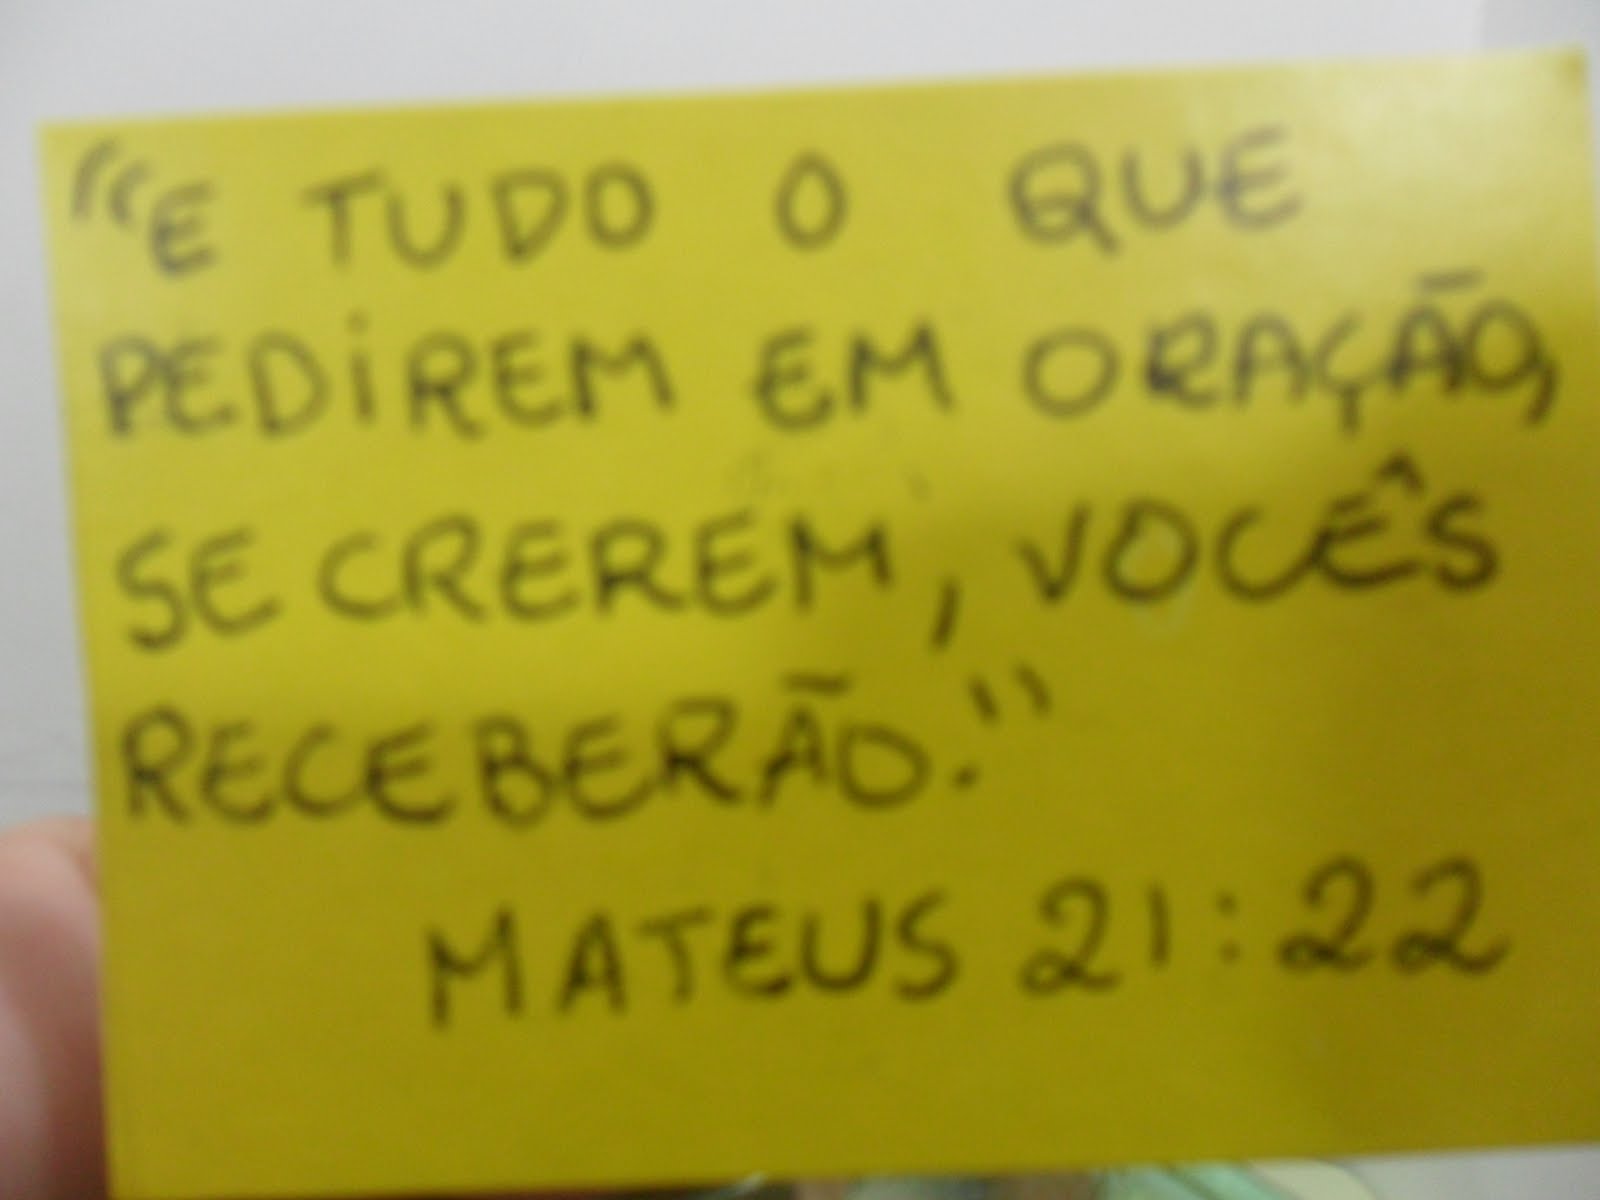 "E TUDO O QUE
PEDiREM EM ORAÇÃO,
SE CREREM, VOCÊS
RECEBERÃO."
MATEUS 21:22